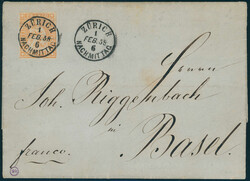 ZÜRICH
1
FEB. 58
6
NACHMITTAG
ZÜRICH
1
FEB. 58
6
NACHMITTAG
Herrn
Joh. Riggenbach
in
Basel.
franco.